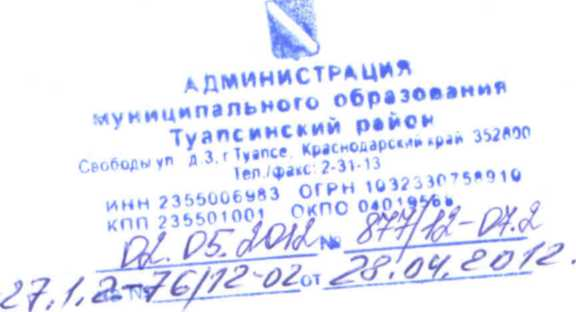 АДМИНИСТРАЦИЯ
муниципального образования
Туапсинский район
Свободы ул. д.3, г.Туапсе, Краснодарский край 352800
Тел./факс: 2-31-13
ИНН 2355006983 ОГРН 1032330758910
КПП 235501001 ОКПО 04019566
02.05.2012 № 877/12-07.2
27.1.2-76/12-02 от 28.04.2012.